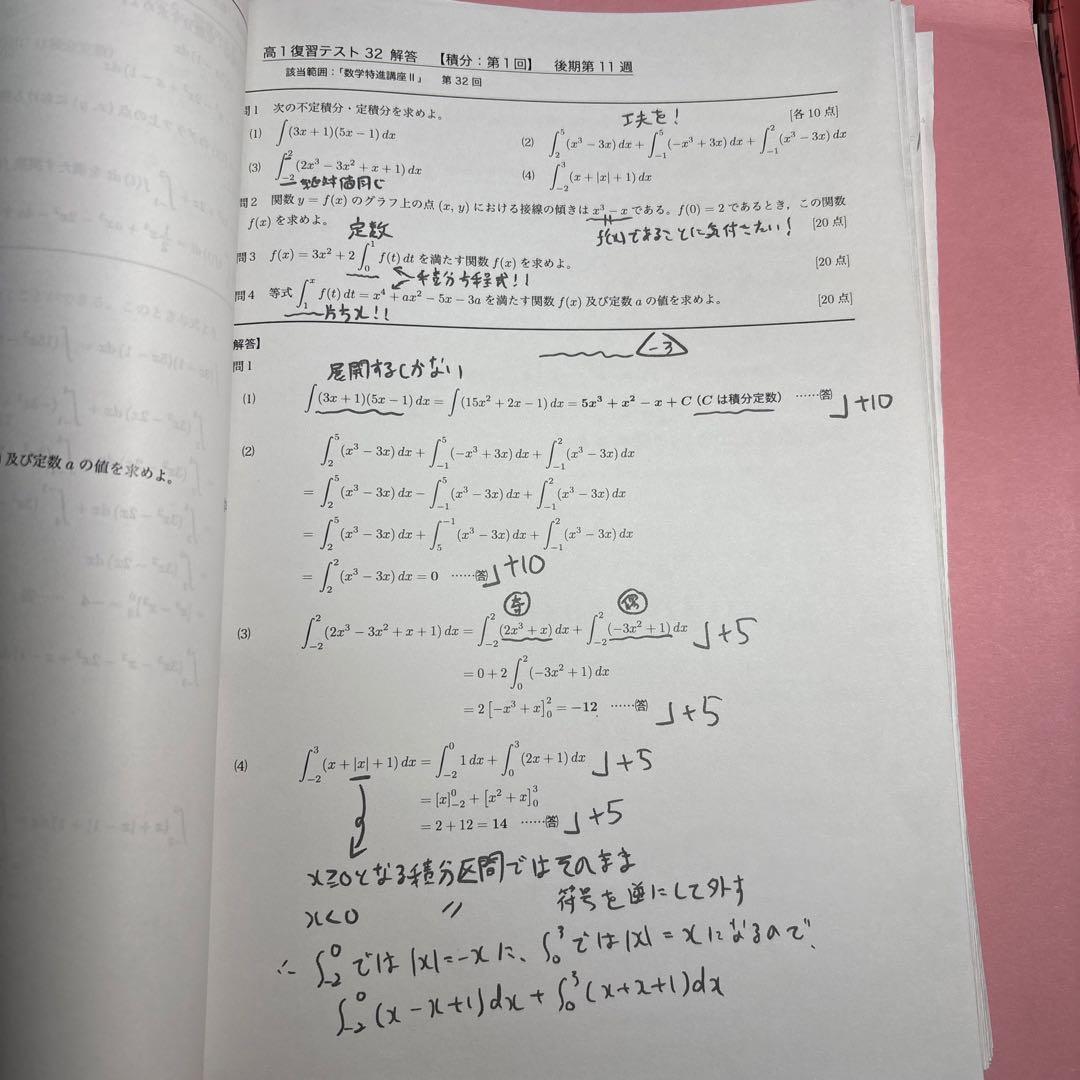 高1復習テスト 32 解答 【積分：第1回】 後期第11週
該当範囲：「数学特進講座Ⅱ」 第32回
問1 次の不定積分・定積分を求めよ。 [各10点]
工夫を！
(1) ∫(3x + 1)(5x − 1) dx
(2) ∫_2^5 (x³ − 3x) dx + ∫_{−1}^5 (−x³ + 3x) dx + ∫_{−1}^2 (x³ − 3x) dx
(3) ∫_{−2}^2 (2x³ − 3x² + x + 1) dx
絶対値同じ
(4) ∫_{−2}^3 (x + |x| + 1) dx
問2 関数 y = f(x) のグラフ上の点 (x, y) における接線の傾きは x³ − x である。f(0) = 2 であるとき，この関数
f(x) を求めよ。 [20点]
定数
であることに気付きたい！
問3 f(x) = 3x² + 2∫_0^1 f(t) dt を満たす関数 f(x) を求めよ。 [20点]
積分方程式！！
問4 等式 ∫_1^x f(t) dt = x⁴ + ax² − 5x − 3a を満たす関数 f(x) 及び定数 a の値を求めよ。 [20点]
片方x！！
解答】
−3
問1
展開するしかない
(1) ∫(3x + 1)(5x − 1) dx = ∫(15x² + 2x − 1) dx = 5x³ + x² − x + C (C は積分定数) ……㊙答 」+10
(2) ∫_2^5 (x³ − 3x) dx + ∫_{−1}^5 (−x³ + 3x) dx + ∫_{−1}^2 (x³ − 3x) dx
= ∫_2^5 (x³ − 3x) dx − ∫_{−1}^5 (x³ − 3x) dx + ∫_{−1}^2 (x³ − 3x) dx
= ∫_2^5 (x³ − 3x) dx + ∫_5^{−1} (x³ − 3x) dx + ∫_{−1}^2 (x³ − 3x) dx
= ∫_2^2 (x³ − 3x) dx = 0 ……答 」+10
奇 偶
(3) ∫_{−2}^2 (2x³ − 3x² + x + 1) dx = ∫_{−2}^2 (2x³ + x) dx + ∫_{−2}^2 (−3x² + 1) dx 」+5
= 0 + 2∫_0^2 (−3x² + 1) dx
= 2[−x³ + x]_0^2 = −12 ……答 」+5
(4) ∫_{−2}^3 (x + |x| + 1) dx = ∫_{−2}^0 1 dx + ∫_0^3 (2x + 1) dx 」+5
= [x]_{−2}^0 + [x² + x]_0^3
= 2 + 12 = 14 ……答 」+5
x≧0となる積分区間ではそのまま
x<0 〃 符号を逆にして外す
∴ ∫_{−2}^0 では |x|=−xに、∫_0^3 では |x|=xになるので、
∫_{−2}^0 (x−x+1)dx + ∫_0^3 (x+x+1)dx
及び定数 a の値を求めよ。